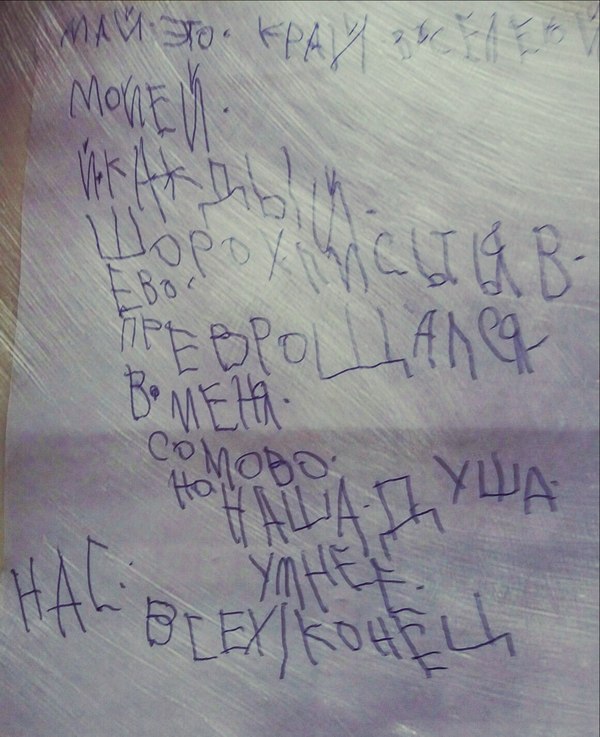 МАЙ·ЭТО·КРАЙ ВСЕЛЕНОЙ
МОЙЕЙ·
Й·КАЖДЫЙ·
ШОРОХ ЛИСЫЯ В·
ЕВО·
ПРЕВРОЩАЛСЯ
В·МЕНЯ·
СОМОВО·
НО НАША·ДУША·
УМНЕЕ·
НАС· ВСЕХ/КОНЕЦ